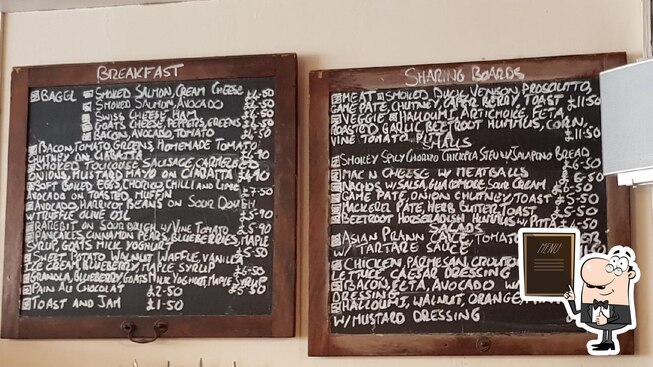 BREAKFAST
BAGEL SMOKED SALMON, CREAM CHEESE £6.50
SMOKED SALMON, AVOCADO £6.50
SWISS CHEESE HAM
GOATS CHEESE, PEPPERS, GREENS
BACON, AVOCADO, TOMATO
BACON, TOMATO, GREENS, HOMEMADE TOMATO
CHUTNEY ON CIABATTA
SMOKED TOULOUSE SAUSAGE, CARM
ONIONS, MUSTARD MAYO ON CIABATTA
SOFT BOILED EGGS, CHORIZO, CHILLI AND LIME
AVOCADO ON TOASTED MUFFIN £7.50
AVOCADO, HARICOT BEANS ON SOUR DOUGH
W/TRUFFLE OLIVE OIL £5.90
RAREBIT ON SOUR DOUGH W/VINE TOMATO £5.90
PANCAKES, CINNAMON PEARS, BLUEBERRIES, MAPLE
SYRUP, GOATS MILK YOGHURT
SWEET POTATO WALNUT WAFFLE, VANILLA
ICE CREAM, BLUEBERRY, MAPLE SYRUP £6.50
GRANOLA, BLUEBERRY, GOATS MILK YOGHURT, MAPLE SYRUP
PAIN AU CHOCOLAT £2.50 £5.50
TOAST AND JAM £1.50
SHARING BOARDS
MEAT SMOKED DUCK, VENISON PROSCIUTTO,
GAME PATE, CHUTNEY, CAPER BERRY, TOAST £11.50
VEGGIE HALLOUMI, ARTICHOKE, FETA,
ROASTED GARLIC, BEETROOT HUMMUS, CORN,
VINE TOMATO, PITTA £11.50
SMALLS
SMOKEY SPICY CHORIZO CHICKPEA STEW W/JALAPONO BREAD
£6.50
MAC N CHEESE W/ MEATBALLS
NACHOS W/ SALSA, GUACOMORE, SOUR CREAM
GAME PATE, ONIONS CHUTNEY, TOAST
MACKEREL PATE, HERB BUTTER, TOAST £5.50
BEETROOT HORSERADISH HUMMUS W/ PITTA
SALADS
ASIAN PRAWN, TOMATO
W/ TARTARE SAUCE
CHICKEN, PARMESAN, CROUTON
LETTUCE, CAESAR DRESSING
BACON, FETA, AVOCADO W
DRESSING
HALLOUMI, WALNUT, ORANGE
W/MUSTARD DRESSING
MENU